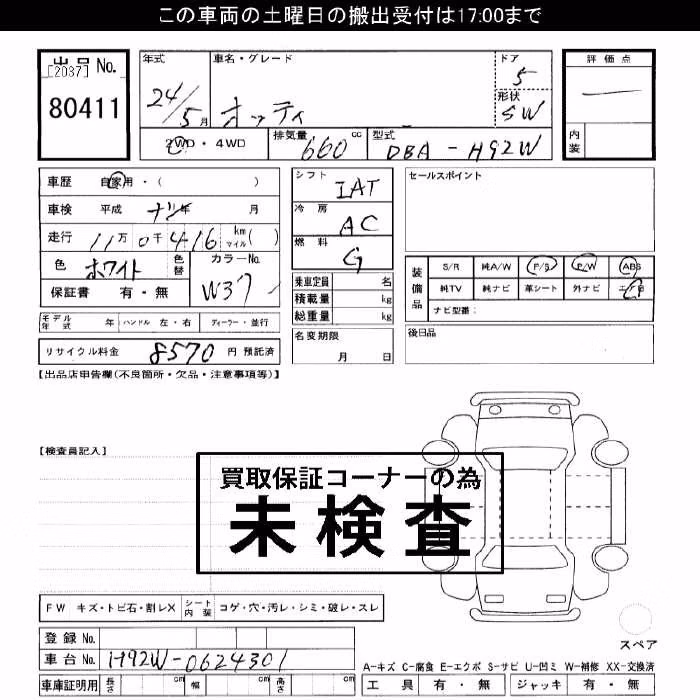 この車両の土曜日の搬出受付は17:00まで
出品 No.
[2037]
80411
年式 車名・グレード ドア
24/5月 オッティ 5
形状 SW
2WD・4WD 排気量 660 cc 型式 DBA - H92W
評価点
内装
車歴 自家用・( )
車検 平成 ナシ年 月
走行 11万 0千 416 km マイル ( )
色 ホワイト 色替 カラーNo. W37
保証書 有・無
シフト IAT
冷房 AC
燃料 G
乗車定員 名
積載量 kg
総重量 kg
名変期限
月 日
セールスポイント
装備品 S/R 純A/W P/S P/W ABS
純TV 純ナビ 革シート 外ナビ エアB
ナビ型番:
後日品
モデル年式 年 ハンドル 左・右 ディーラー・並行
リサイクル料金 8570 円 預託済
【出品店申告欄(不良箇所・欠品・注意事項等)】
【検査員記入】
買取保証コーナーの為
未検査
FW キズ・トビ石・割レX シート内装 コゲ・穴・汚レ・シミ・破レ・スレ
登録 No.
車台 No. H92W-0624301
車庫証明用 長さ cm 幅 cm 高さ cm
スペア
A-キズ C-腐食 E-エクボ S-サビ U-凹ミ W-補修 XX-交換済
工具 有・無 ジャッキ 有・無